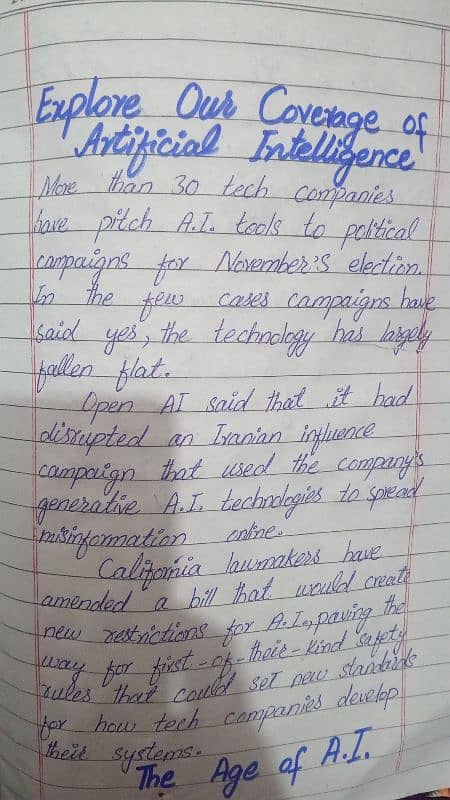 Explore Our Coverage of
Artificial Intelligence
More than 30 tech companies
have pitch A.I. tools to political
campaigns for November's election.
In the few cases campaigns have
said yes, the technology has largely
fallen flat.
Open AI said that it had
disrupted an Iranian influence
campaign that used the company's
generative A.I. technologies to spread
misinformation online.
California lawmakers have
amended a bill that would create
new restrictions for A.I., paving the
way for first-of-their-kind safety
rules that could set new standards
for how tech companies develop
their systems.
The Age of A.I.